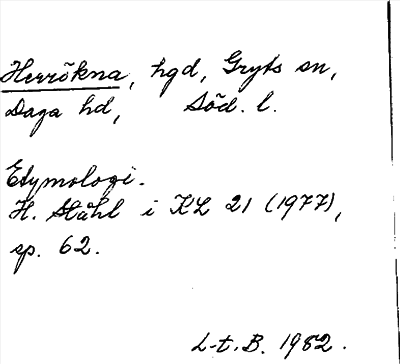 Herrökna, hgd, Gryts sn,
Daga hd, Söd. l.
Etymologi.
H. Ståhl i KL 21 (1977),
sp. 62.
L-t. B. 1982.